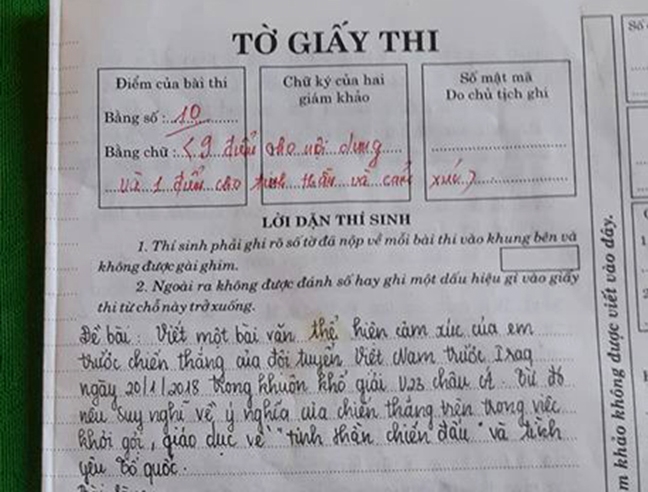 TỜ GIẤY THI
Điểm của bài thi
Bằng số : 10
Bằng chữ : (9 điểm cho nội dung
và 1 điểm cho tinh thần và cảm xúc)
Chữ ký của hai
giám khảo
Số mật mã
Do chủ tịch ghi
LỜI DẶN THÍ SINH
1. Thí sinh phải ghi rõ số tờ đã nộp về mỗi bài thi vào khung bên và
không được gài ghim.
2. Ngoài ra không được đánh số hay ghi một dấu hiệu gì vào giấy
thi từ chỗ này trở xuống.
Đề bài : Viết một bài văn thể hiện cảm xúc của em
trước chiến thắng của đội tuyển Việt Nam trước Iraq
ngày 20/1/2018 trong khuôn khổ giải U23 châu Á. Từ đó
nêu suy nghĩ về ý nghĩa của chiến thắng trên trong việc
khơi gợi, giáo dục về "tinh thần chiến đấu" và tình
yêu Tổ quốc.
Số
m khảo không được viết vào đây.
1
2